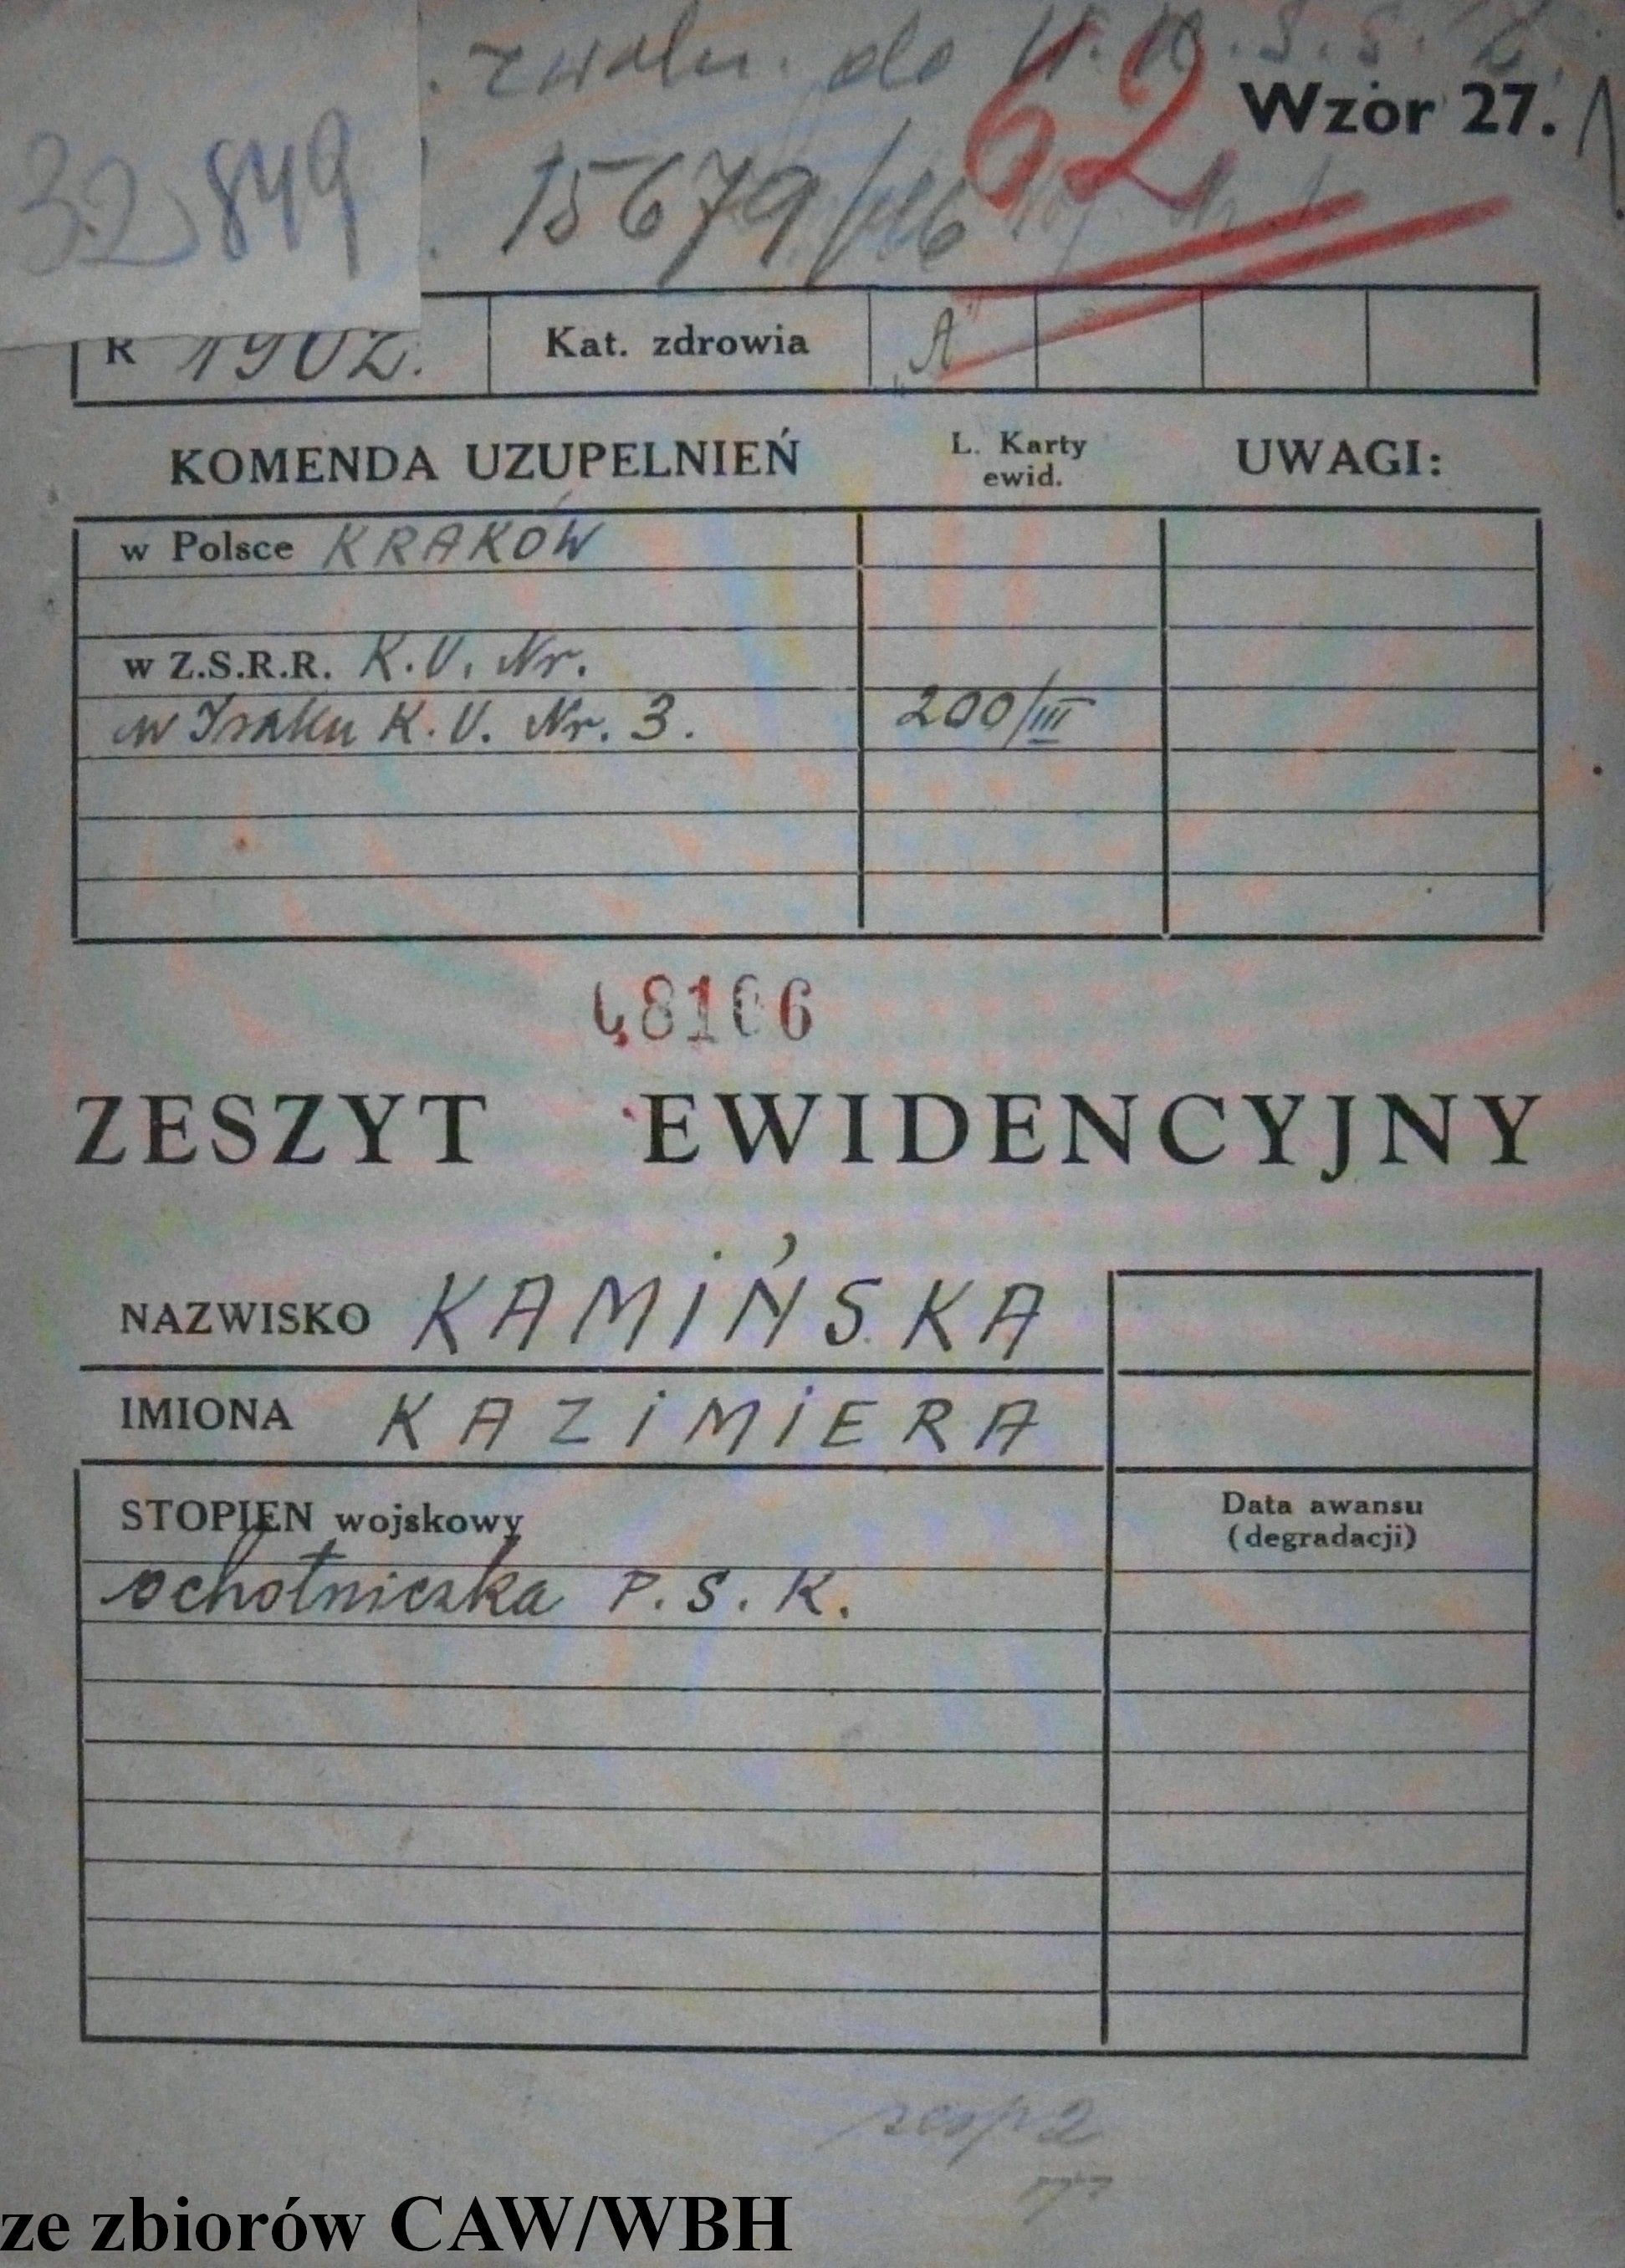 . zwoln. do
62
Wzór 27.
32,849
15679/46
R 1902.
Kat. zdrowia
„A"
KOMENDA UZUPEŁNIEŃ
L. Karty
ewid.
UWAGI:
w Polsce KRAKÓW
w Z.S.R.R. K.U. Nr.
w Iraku K.U. Nr. 3.
200/III
48106
ZESZYT EWIDENCYJNY
NAZWISKO KAMIŃSKA
IMIONA KAZIMIERA
STOPIEŃ wojskowy
Data awansu
(degradacji)
ochotniczka P.S.K.
ze zbiorów CAW/WBH